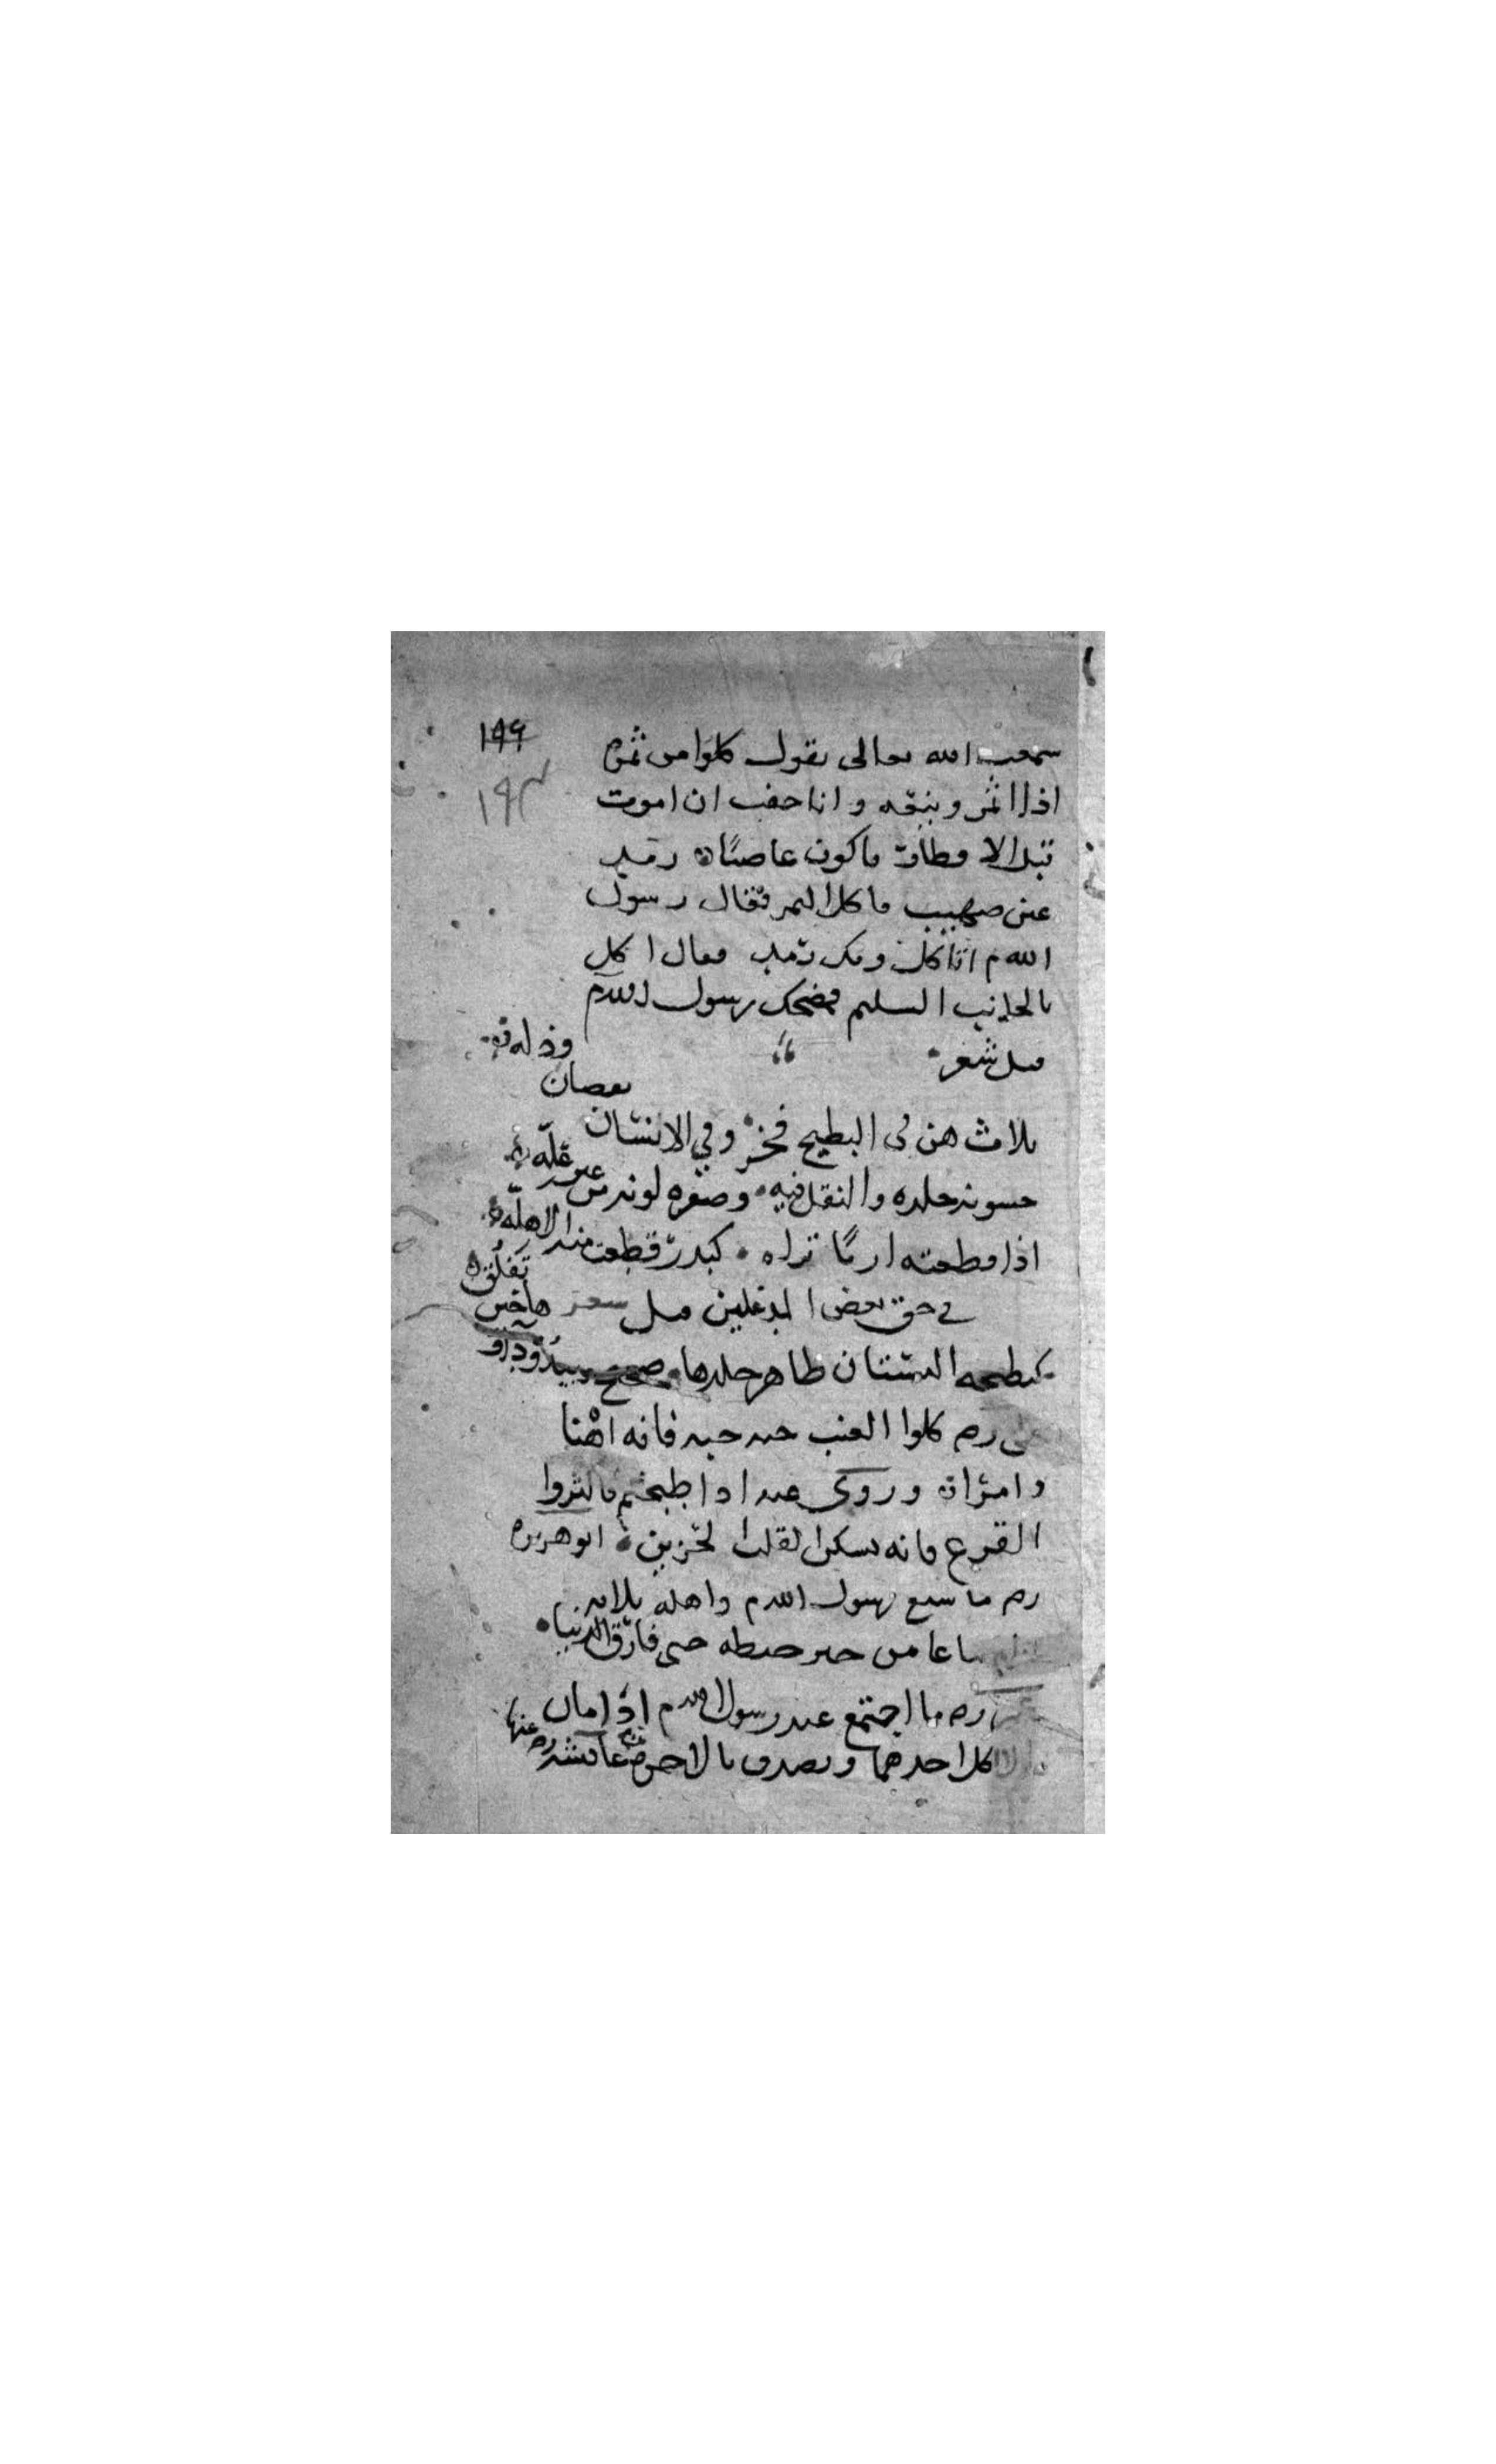 ١٩٩
١٩٣
سمعت الله تعالى يقول كلوا من ثمره
اذا اثمر وينعه وانا خفت ان اموت
قبل الافطار فاكون عاصيا رمدت
عين صهيب فاكل التمر فقال رسول
الله م اتاكل وبك رمد فقال اكل
بالجانب السليم فضحك رسول الله م
قيل شعر
وذله
نقصان
ثلاث هن في البطيخ فخر وفي الانسان
خشونة جلده والثقل فيه وصفرة لونه من غير علة
اذا قطعته اربا تراه كبدر قطعت منه الاهلة
في حق بعض قيل شعر
كبطيخة البستان ظاهر جلدها صحيح ويبدو
رم كلوا العنب حبه حبه فانه اهنا
وامرا وروى عنه اذا طبختم فاكثروا
القرع فانه يسكن القلب الحزين ابو هريره
رم ما شبع رسول الله م واهله ثلاثة
تباعا من خبز حنطه حتى فارق الدنيا
رم ما اجتمع عند رسول الله م ادامان
الا اكل احدهما وتصدق بالاخر عائشه رم عنها